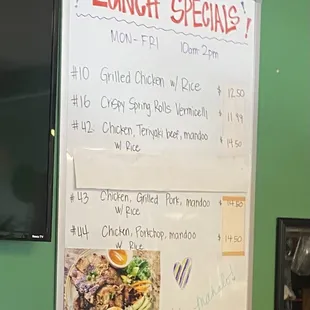 LUNCH SPECIALS!
MON-FRI 10am-2pm
#10 Grilled Chicken w/ Rice $12.50
#16 Crispy Spring Rolls Vermicelli $11.99
#42 Chicken, Teriyaki beef, mandoo
w/ Rice $14.50
#43 Chicken, Grilled Pork, mandoo $14.50
w/ Rice
#44 Chicken, Porkchop, mandoo
w Rice $14.50